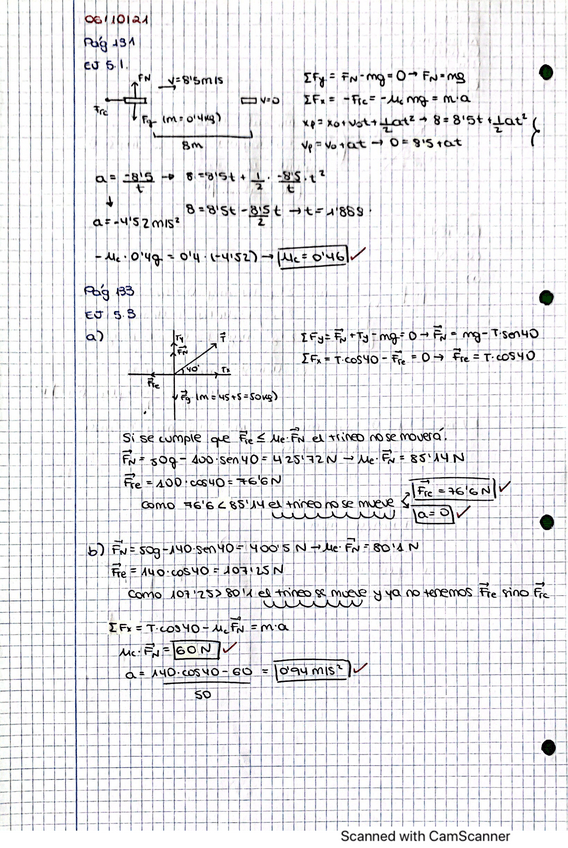 06/10/21
Pág 131
EJ 5.1.
FN v=8'5m/s v=0
Frc Fg (m=0'4kg)
8m
ΣFy = FN - mg = 0 → FN = mg
ΣFx = -Frc = -μc mg = m·a
xf = x0 + v0t + 1/2 at² → 8 = 8'5t + 1/2 at²
vf = v0 + at → 0 = 8'5 + at
a = -8'5/t → 8 = 8'5t + 1/2 · -8'5/t · t²
a = -4'52 m/s² 8 = 8'5t - 8'5t/2 → t = 1'88s.
-μc · 0'4g = 0'4 · (-4'52) → μc = 0'46 ✓
Pág 133
EJ 5.3
a) Ty FN T 40° Tx Fre
Fg (m=45+5=50kg)
ΣFy = FN + Ty - mg = 0 → FN = mg - T·sen40
ΣFx = T·cos40 - Fre = 0 → Fre = T·cos40
Si se cumple que Fre ≤ μe·FN el trineo no se moverá:
FN = 50g - 100·sen40 = 425'72N → μe·FN = 85'14N
Fre = 100·cos40 = 76'6N
Como 76'6 < 85'14 el trineo no se mueve Fre = 76'6N ✓
a = 0 ✓
b) FN = 50g - 140·sen40 = 400'5N → μe·FN = 80'1N
Fre = 140·cos40 = 107'25N
Como 107'25 > 80'1 el trineo se mueve y ya no tenemos Fre sino Frc
ΣFx = T·cos40 - μc FN = m·a
μc·FN = 60N ✓
a = 140·cos40 - 60 / 50 = 0'94 m/s² ✓
Scanned with CamScanner